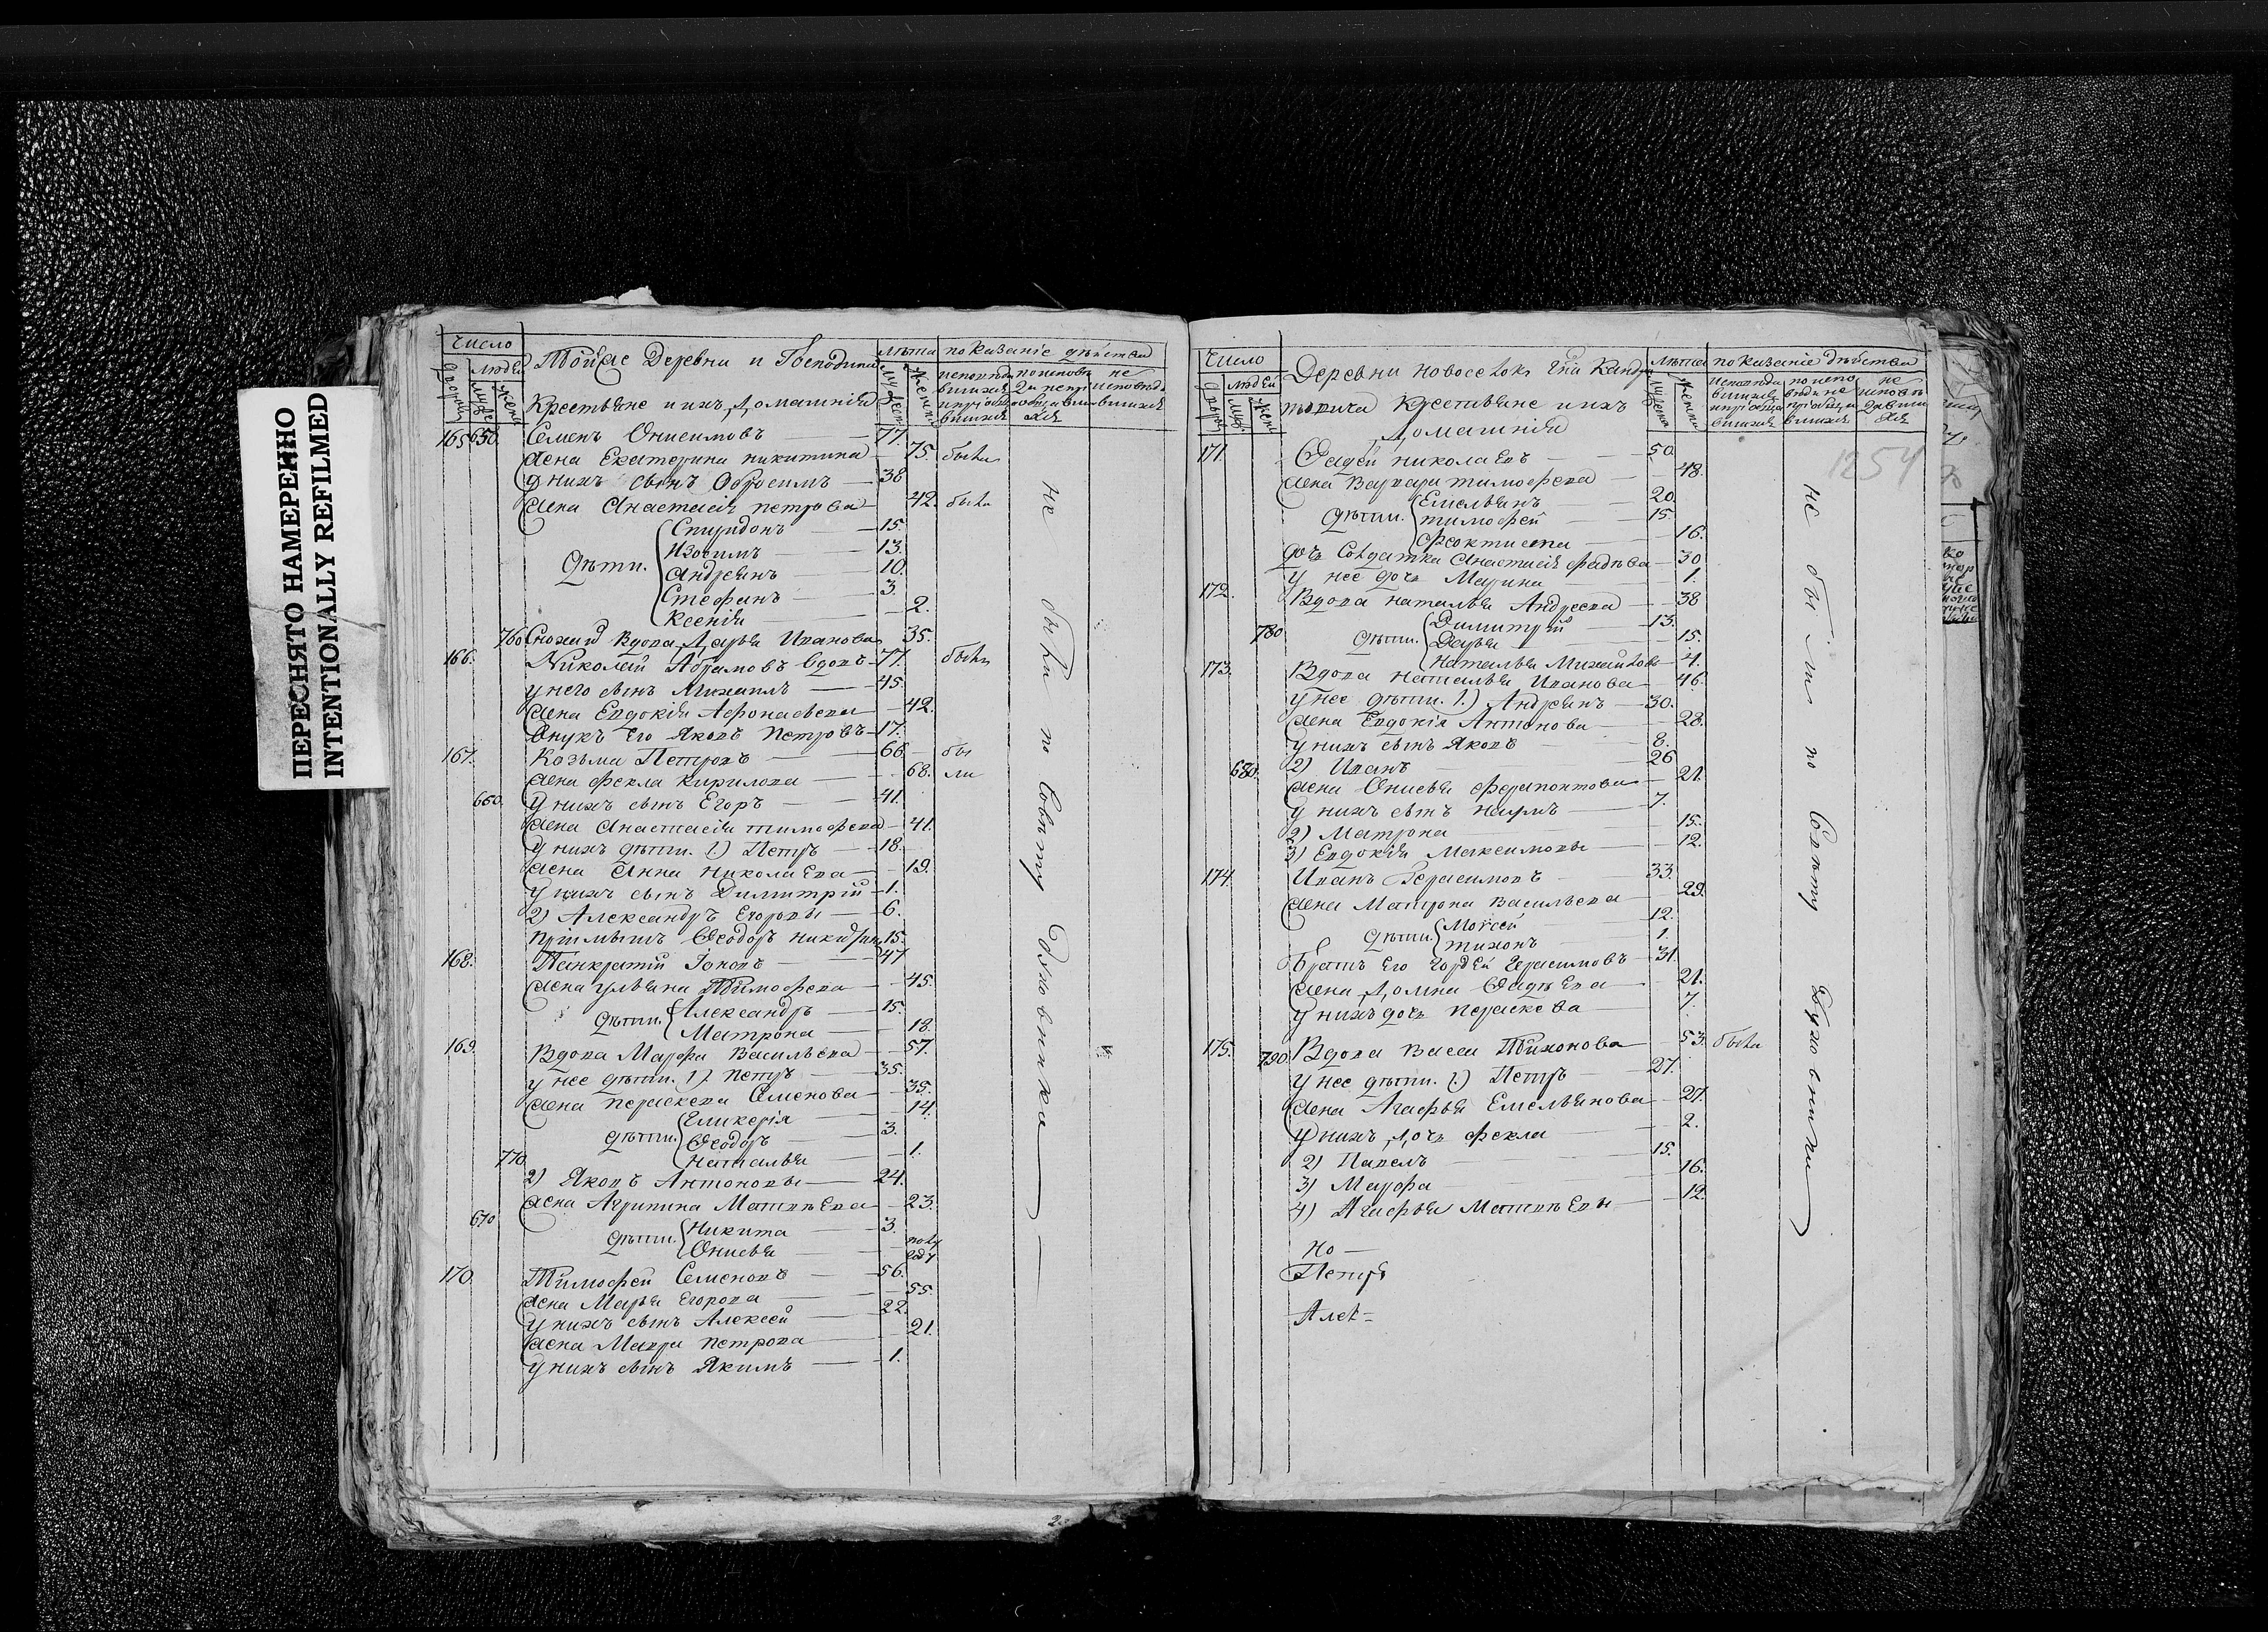 ПЕРЕСНЯТО НАМЕРЕННО
INTENTIONALLY REFILMED
число
людей
Тойже Деревни и Господина
Крестьяне и ихъ Домашнія
лѣта
показаніе дѣйства
165. 650. Семенъ Онисимовъ 77.
жена Екатерина никитина 75. были
у нихъ сынъ Обросимъ 38
жена Анастасія петрова 42. были
дѣти. Спиридонъ 15.
Изосимъ 13.
Андреянъ 10.
Стефанъ 3.
Ксенія 2.
760 Сноха вдова Дарья Иванова 35.
166. Николай Абрамовъ вдовъ 77. были
у него сынъ Михаилъ 45.
жена Евдокія Афонасьева 42.
внукъ Его Яковъ Петровъ 17.
167. Козьма Петровъ 66 бы
жена фекла кирилова 68. ли
660. у нихъ сынъ Егоръ 41.
жена Анастасія тимофева 41.
у нихъ дѣти. 1.) Петръ 18.
жена Анна николаева 19.
у нихъ сынъ Димитрій 1.
2) Александръ Егоровы 6.
пріимышъ Ѳеодоръ 15.
168. Панкратій Іоновъ 47
жена ульяна Тимофева 45.
дѣти. Александръ 15.
Матрона 18.
169. Вдова Марфа Васильева 57.
у нее дѣти. 1). Петръ 35.
жена параскева Семенова 35.
дѣти. Гликерія 14.
Ѳеодоръ 3.
770. наталья 1.
2) Яковъ Антоновы 24.
жена Агрипина Матвѣева 23.
670 дѣти. Никита 3.
Онисья полу году
170. Тимофей Семеновъ 56.
жена Марья Егорова 55.
у нихъ сынъ Алексей 22.
жена Мавра петрова 21.
у нихъ сынъ Якимъ 1.
не были по совѣту духовника
Число
людей
Деревни новоселокъ
Крестьяне и ихъ
Домашнія
лѣта
показаніе дѣйства
1254
171. Фадей николаевъ 50.
жена Варвара тимофева 48.
дѣти. Емельянъ 20.
тимофей 15.
Феоктиста 16.
дочь Солдатка Анастасія фадѣва 30
у нее дочь Марина 1.
172. Вдова наталья Андреева 38
780. дѣти. Димитрій 13.
Дарья 15.
наталья Михайловы 4.
173. Вдова наталья Иванова 46.
у нее дѣти. 1.) Андреянъ 30.
жена Евдокія Антонова 28.
у нихъ сынъ Яковъ 8.
680. 2) Иванъ 26
жена Онисья ферапонтова 21.
у нихъ сынъ наумъ 7.
2) Матрона 15.
3) Евдокія Максимовы 12.
174. Иванъ Герасимовъ 33.
жена Матрона васильева 29.
дѣти. Моѵсей 12.
тихонъ 1.
Братъ Его гордей герасимовъ 31.
жена Домна Фадѣева 21.
у нихъ дочь параскева 7.
175. 790. Вдова васса Тихонова 53. была
у нее дѣти. 1.) Петръ 27.
жена Агафья Емельянова 27.
у нихъ дочь фекла 2.
2) Павелъ 15.
3) Марфа 16.
4) Агафья Матвѣевы 12.
но
Петръ
Алек=
не были по совѣту Духовника